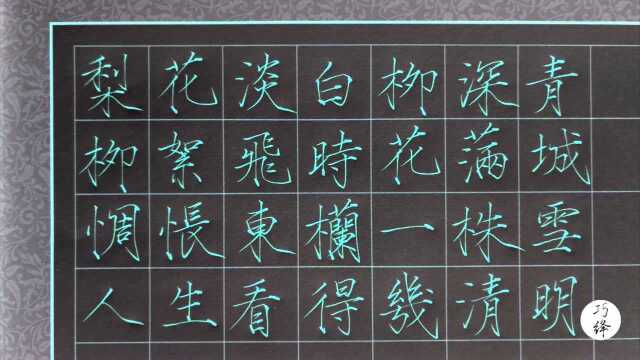 梨花淡白柳深青
柳絮飛時花滿城
惆悵東欄一株雪
人生看得幾清明
巧绎